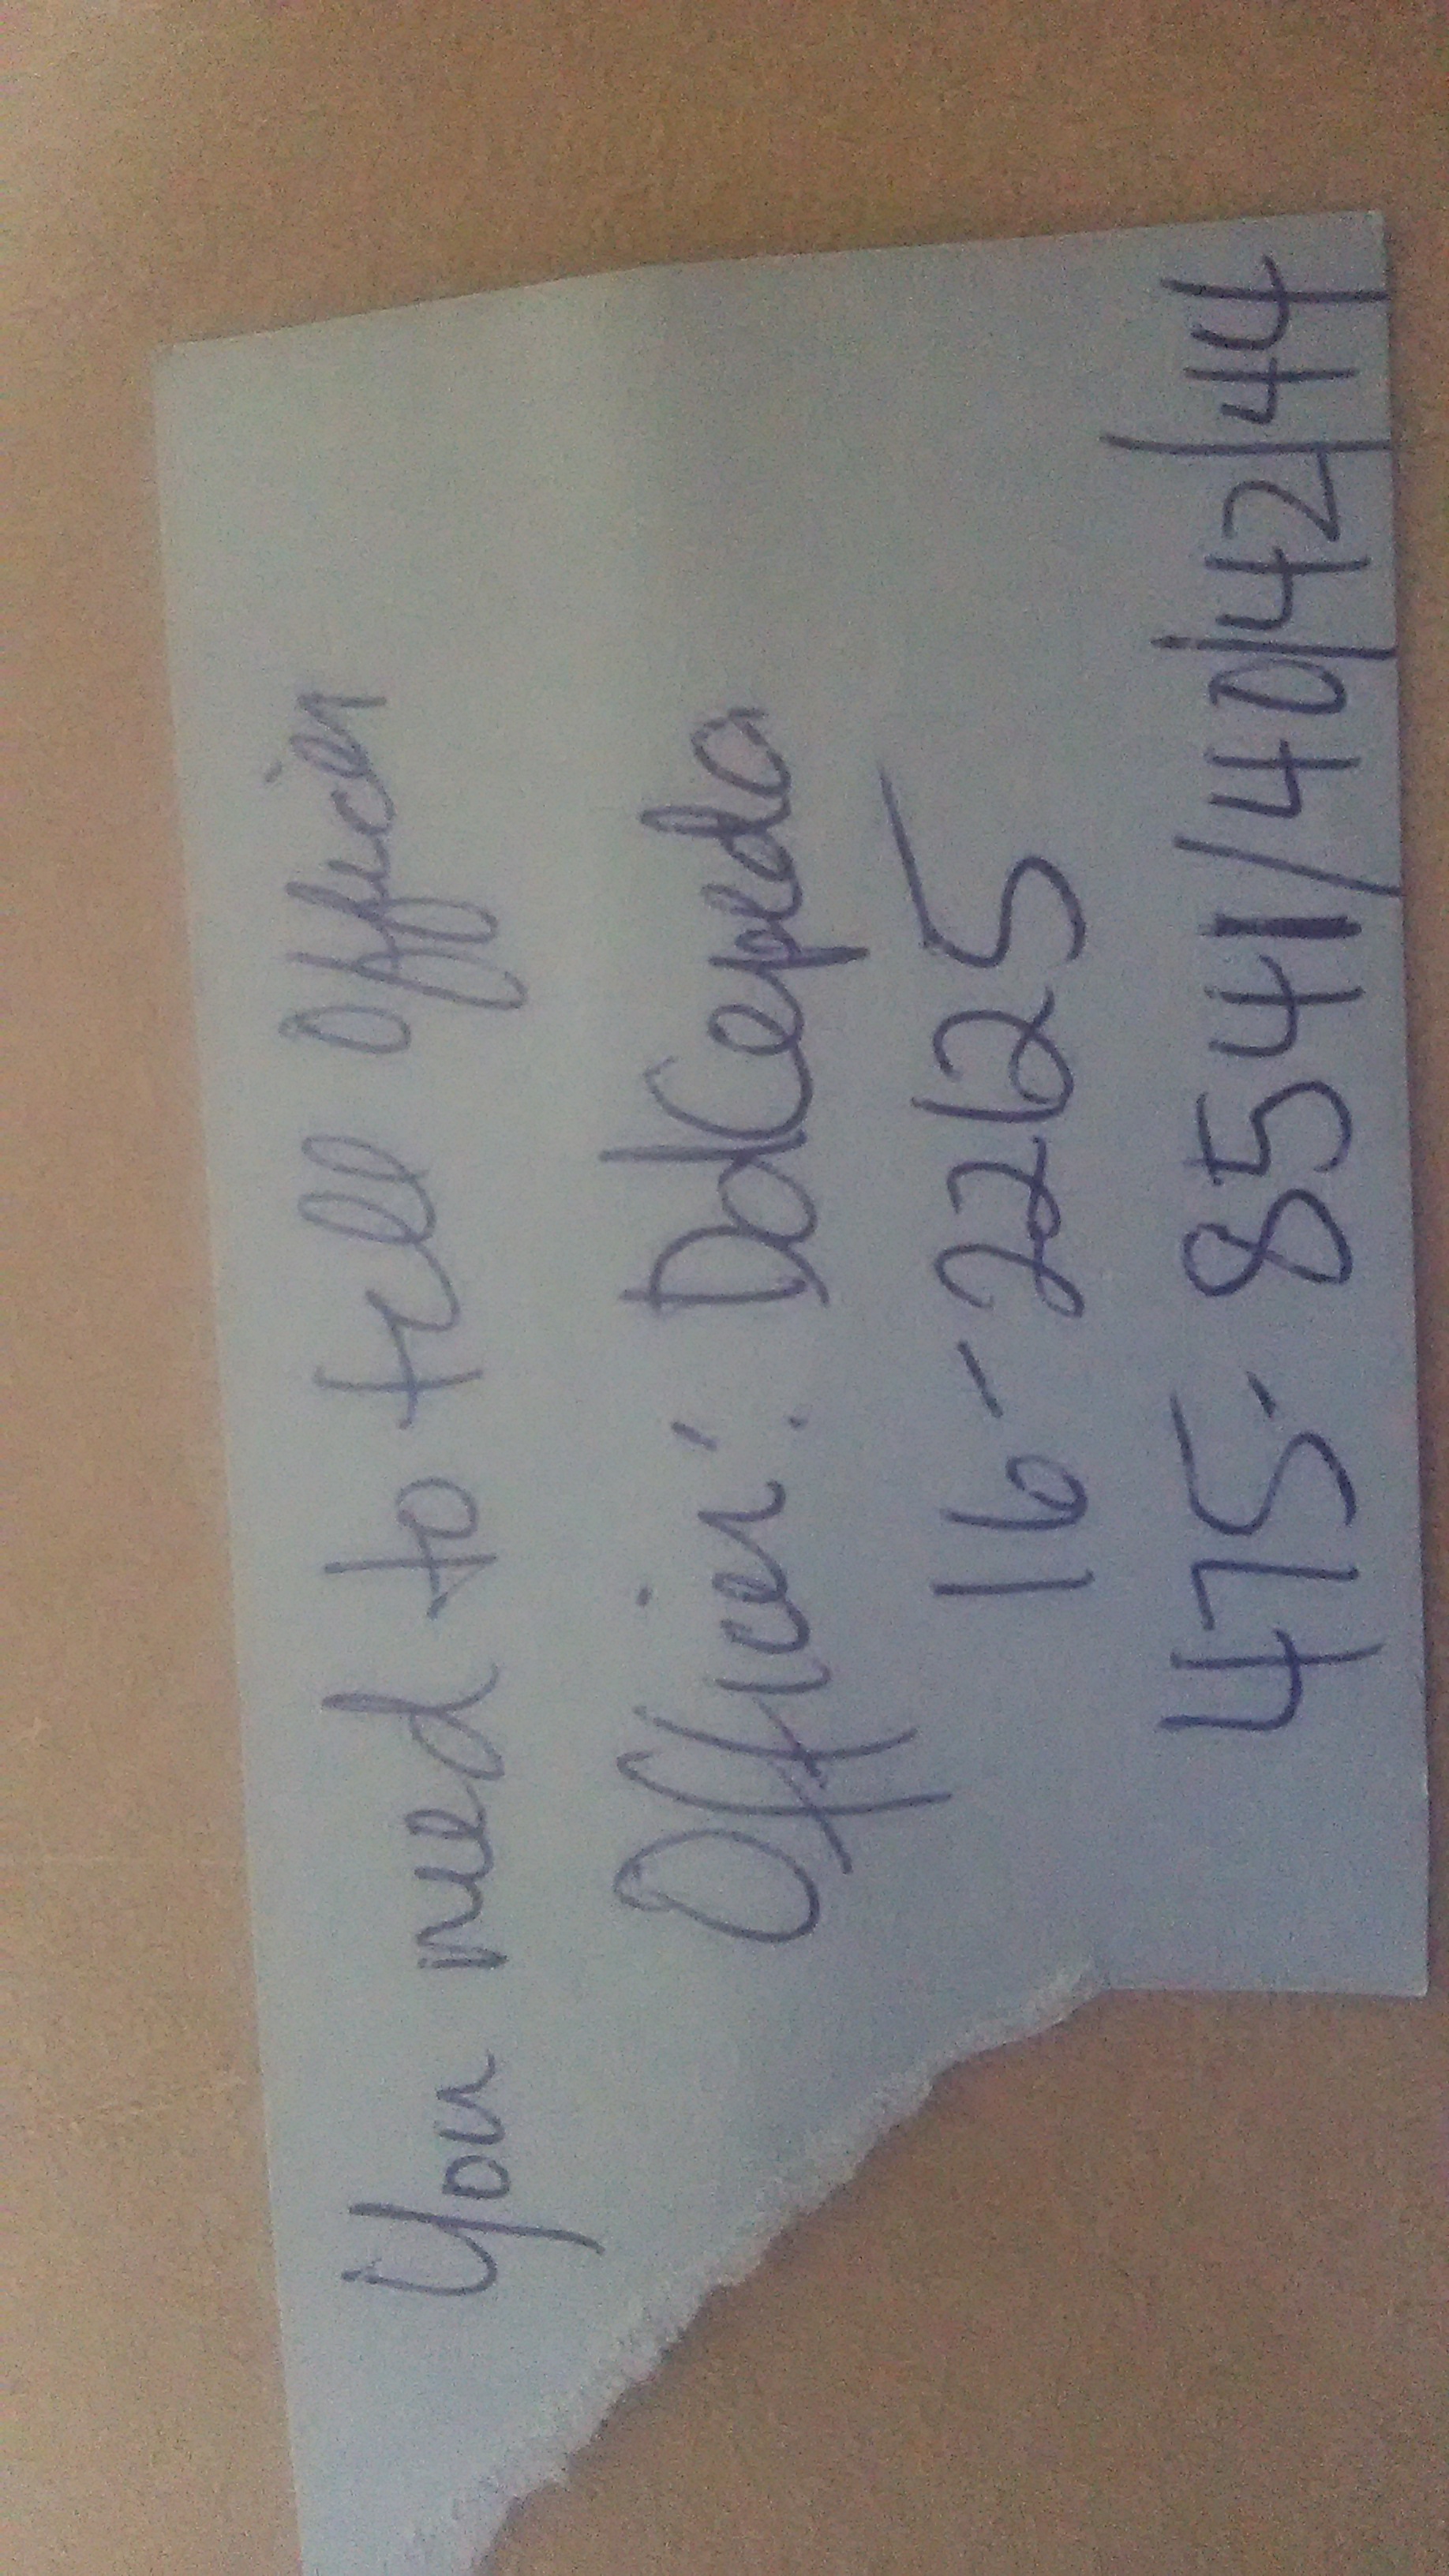 You need to tell officer
Officer: DdCepeda
16-22625
475-8541/40/42/44